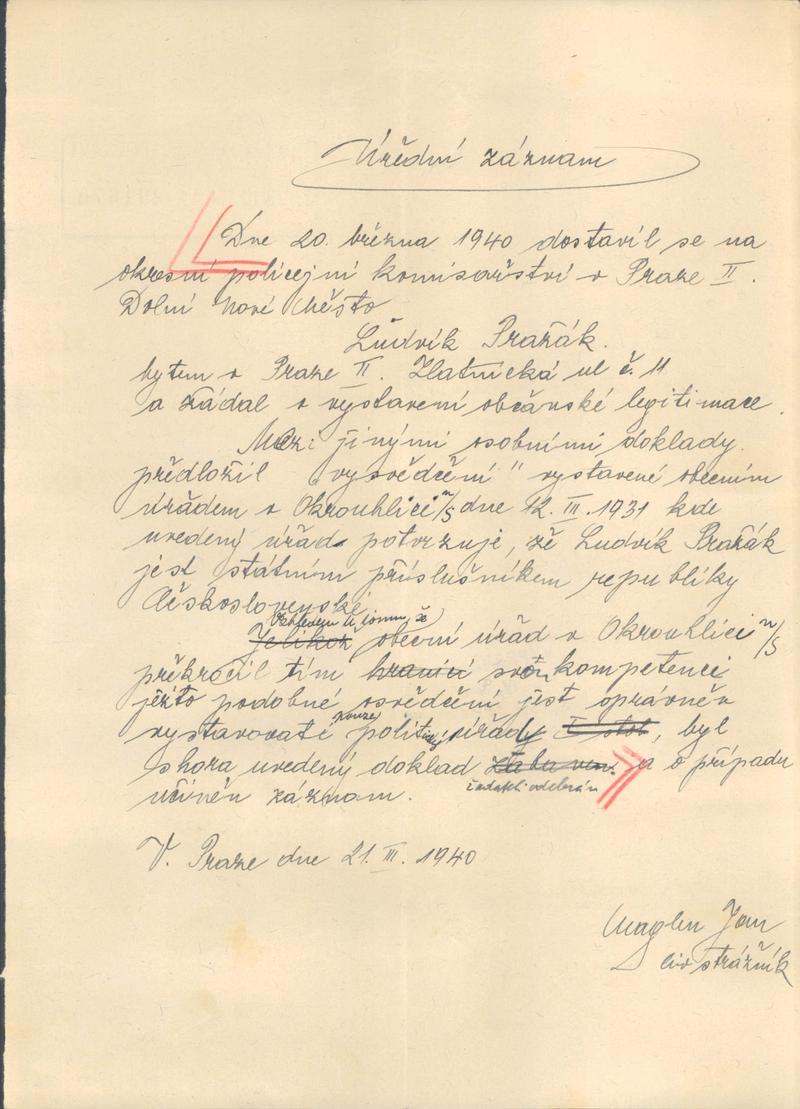 Úřední záznam
Dne 20. března 1940 dostavil se na
okresní policejní komisařství v Praze II.
Dolní Nové Město
Ludvík Pražák.
bytem v Praze II. Zlatnická ul č. 11
a žádal o vystavení občanské legitimace.
Mezi jinými osobními doklady
předložil „vysvědčení" vystavené obecním
úřadem v Okrouhlici n/S dne 12. III. 1931 kde
uvedený úřad potvrzuje, že Ludvík Pražák
jest státním příslušníkem republiky
Československé
Vzhledem k tomu, že
Jelikož obecní úřad v Okrouhlici n/S
překročil tím hranici svoji kompetenci
ježto podobné osvědčení jest oprávněn
vystavovati pouze politický úřad I stol, byl
shora uvedený doklad a o případu
žadateli odebrán
učiněn záznam.
V. Praze dne 21. III. 1940
Jan
strážník